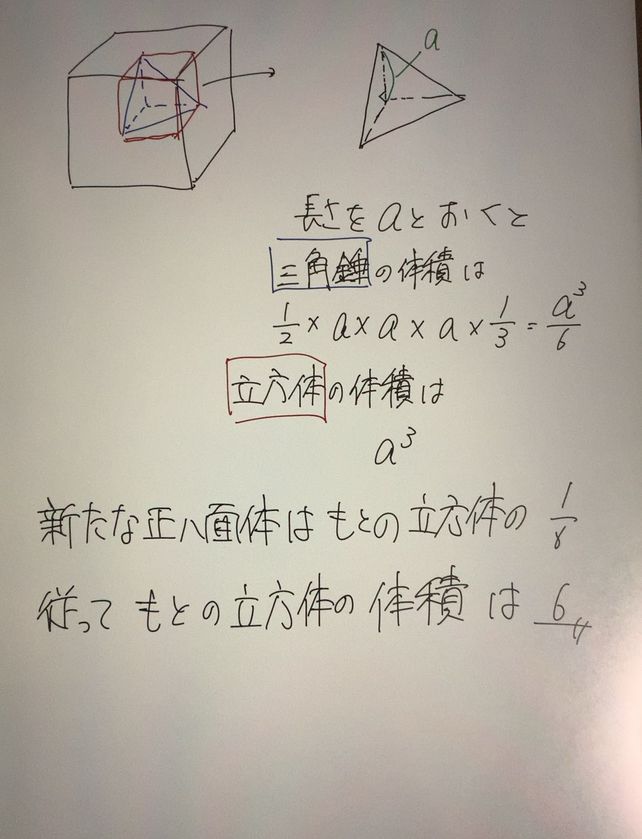 a
長さをaとおくと
三角錐の体積は
1/2 × a × a × a × 1/3 = a³/6
立方体の体積は
a³
新たな正八面体はもとの立方体の 1/8
従って もとの立方体の 体積 は 6